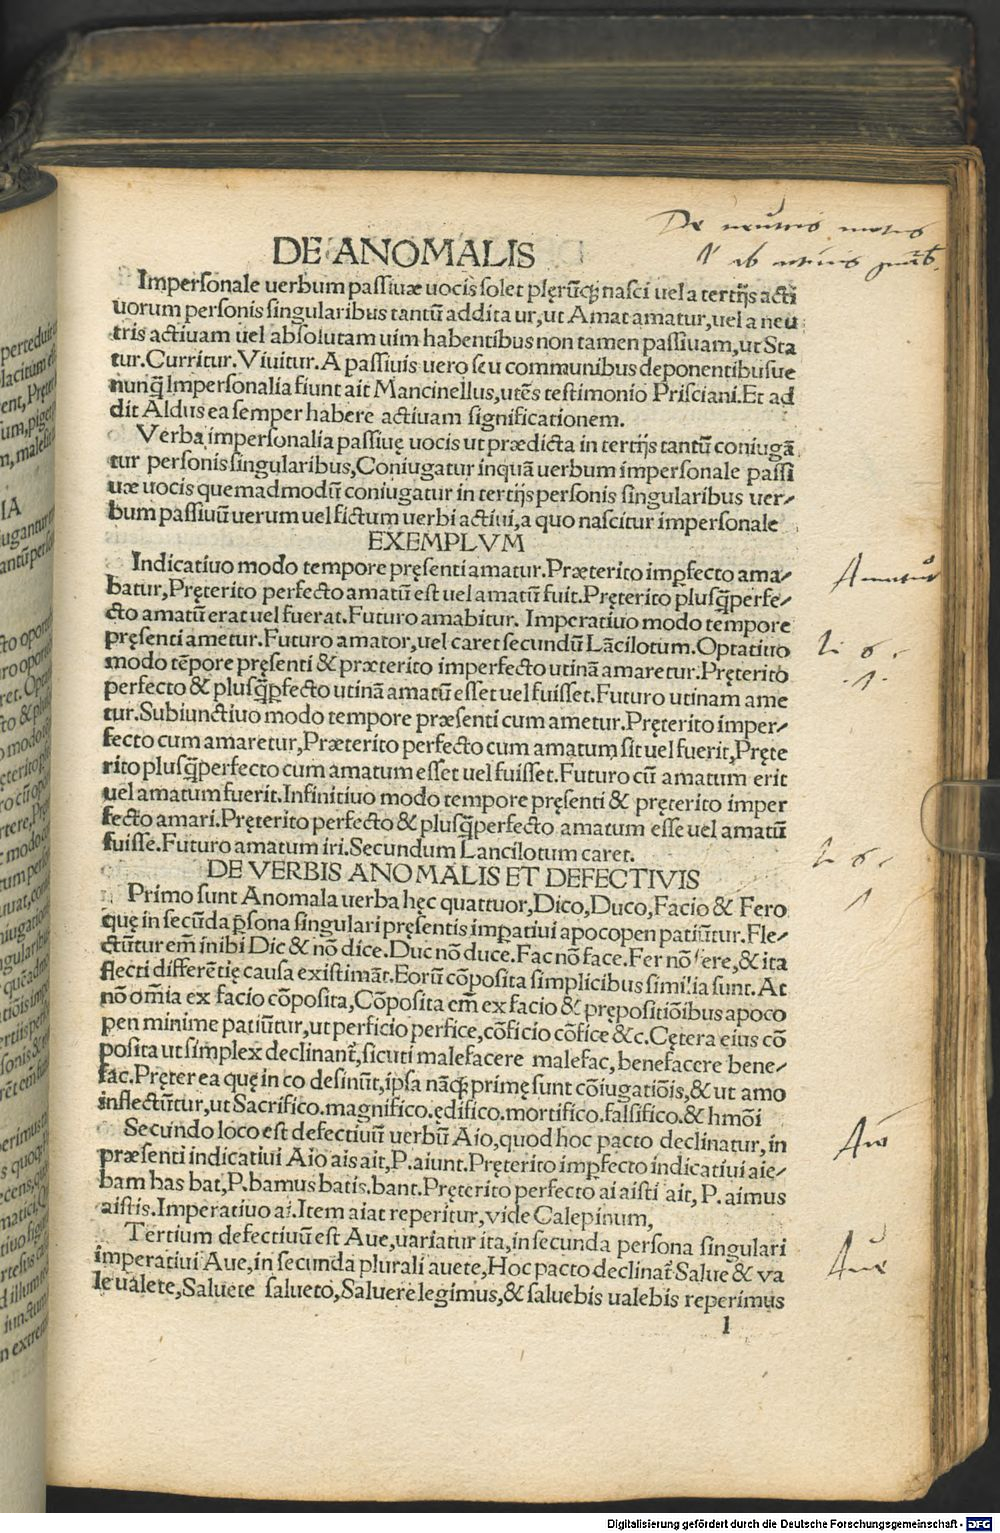 DE ANOMALIS
Impersonale uerbum passiuæ uocis solet plęrũq; nasci uel a tertijs acti
uorum personis singularibus tantũ addita ur, ut Amat amatur, uel a neu
tris actiuam uel absolutam uim habentibus non tamen passiuam, ut Sta
tur. Curritur. Viuitur. A passiuis uero seu communibus deponentibusue
nunq̃ Impersonalia fiunt ait Mancinellus, utẽs testimonio Prisciani. Et ad
dit Aldus ea semper habere actiuam significationem.
Verba impersonalia passiuę uocis ut prædicta in tertijs tantũ coniugã
tur personis singularibus, Coniugatur inquã uerbum impersonale passi
uæ uocis quemadmodũ coniugatur in tertijs personis singularibus uer-
bum passiuũ uerum uel fictum uerbi actiui, a quo nascitur impersonale
EXEMPLVM
Indicatiuo modo tempore pręsenti amatur. Præterito imꝑfecto ama-
batur, Pręterito perfecto amatũ est uel amatũ fuit. Pręterito plusq̃perfe-
cto amatũ erat uel fuerat. Futuro amabitur. Imperatiuo modo tempore
pręsenti ametur. Futuro amator, uel caret secundũ Lãcilotum. Optatiuo
modo tẽpore pręsenti & præterito imperfecto utinã amaretur. Pręterito
perfecto & plusq̃ꝑfecto utinã amatũ esset uel fuisset. Futuro utinam ame
tur. Subiunctiuo modo tempore præsenti cum ametur. Pręterito imper-
fecto cum amaretur, Præterito perfecto cum amatum sit uel fuerit, Pręte
rito plusq̃perfecto cum amatum esset uel fuisset. Futuro cũ amatum erit
uel amatum fuerit. Infinitiuo modo tempore pręsenti & pręterito imper
fecto amari. Pręterito perfecto & plusq̃perfecto amatum esse uel amatũ
fuisse. Futuro amatum iri. Secundum Lancilotum caret.
DE VERBIS ANOMALIS ET DEFECTIVIS
Primo sunt Anomala uerba hęc quattuor, Dico, Duco, Facio & Fero
quę in secũda ꝑsona singulari pręsentis imꝑatiui apocopen patiũtur. Fle-
ctũtur em̃ inibi Dic & nõ dice. Duc nõ duce. Fac nõ face. Fer nõ fere, & ita
flecti differẽtię causa existimãt. Eorũ cõposita simplicibus similia sunt. At
nõ om̃ia ex facio cõposita, Cõposita em̃ ex facio & prępositiõibus apoco
pen minime patiũtur, ut perficio perfice, cõficio cõfice &c. Cętera eius cõ
posita ut simplex declinant̃, sicuti malefacere malefac, benefacere bene-
fac. Pręter ea quę in co desinũt, ipsa nãq; primę sunt cõiugatiõis, & ut amo
inflectũtur, ut Sacrifico. magnifico. ędifico. mortifico. falsifico. & hmõi
Secundo loco est defectiuũ uerbũ Aio, quod hoc pacto declinatur, in
præsenti indicatiui Aio ais ait, P. aiunt. Pręterito imꝑfecto indicatiui aie-
bam bas bat, P. bamus batis. bant. Pręterito perfecto ai aisti ait, P. aimus
aistis. Imperatiuo ai. Item aiat reperitur, vide Calepinum,
Tertium defectiuũ est Aue, uariatur ita, in secunda persona singulari
imperatiui Aue, in secunda plurali auete, Hoc pacto declinat̃ Salue & va
le ualete, Saluete salueto, Saluere legimus, & saluebis ualebis reperimus
l
Amatur
Aio
Aue
Digitalisierung gefördert durch die Deutsche Forschungsgemeinschaft - DFG